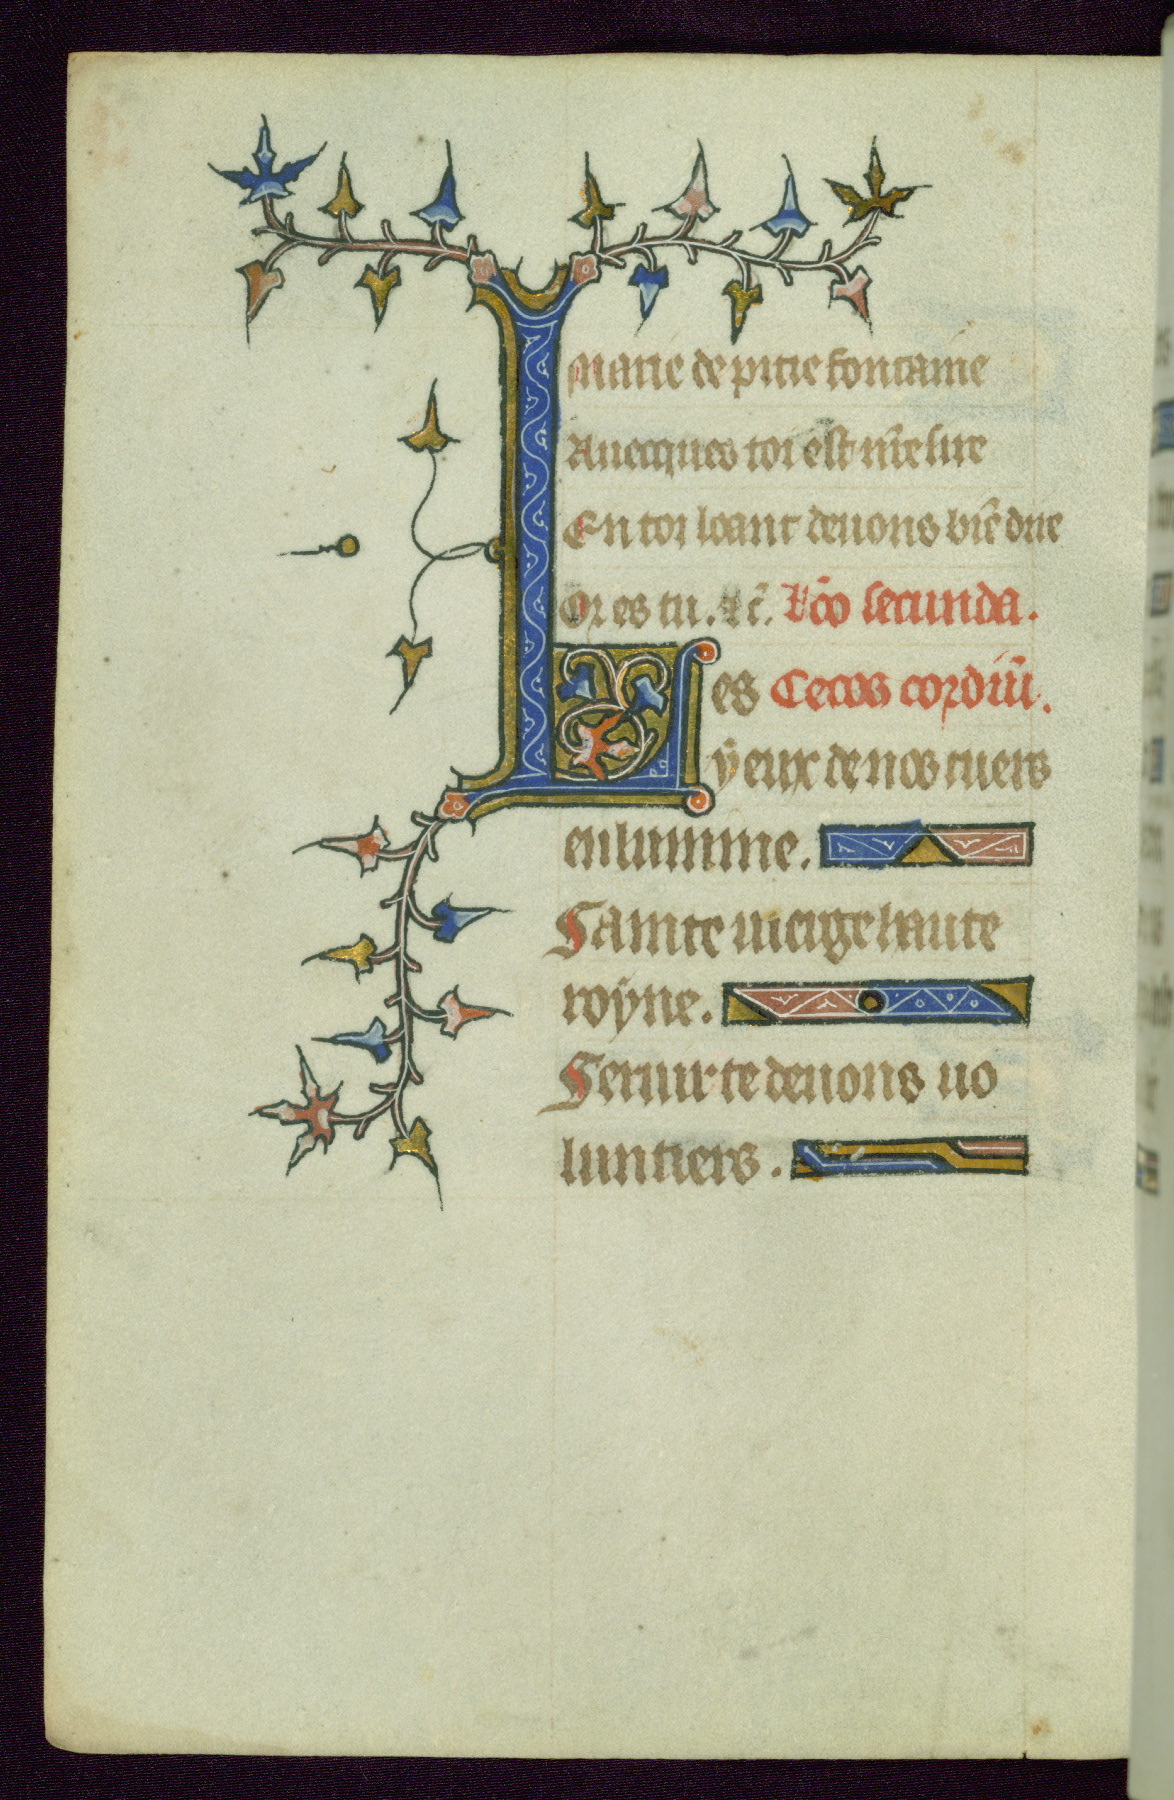 Marie de pitie fontaine
Auecques toi est nr̃e sire
En toi loant deuons bñe dire
Or es tu. ⁊ c̃. Lc̃o secunda.
Les Cecos cordiũ.
ÿeux de nos cuers
enlumine.
Sainte uierge haute
roÿne.
Seruir te deuons uo
luntiers.